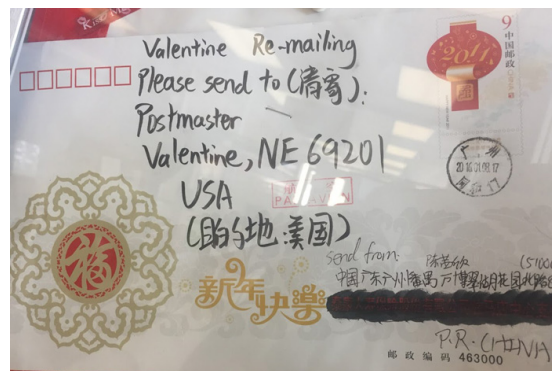 Valentine Re-mailing
Please send to (请寄):
Postmaster
Valentine, NE 69201
USA
(目的地:美国)
9
中国邮政
2011
福
新年快樂
广州
send from:
中国广东广州番禺万博
P.R. CHINA
邮政编码 463000